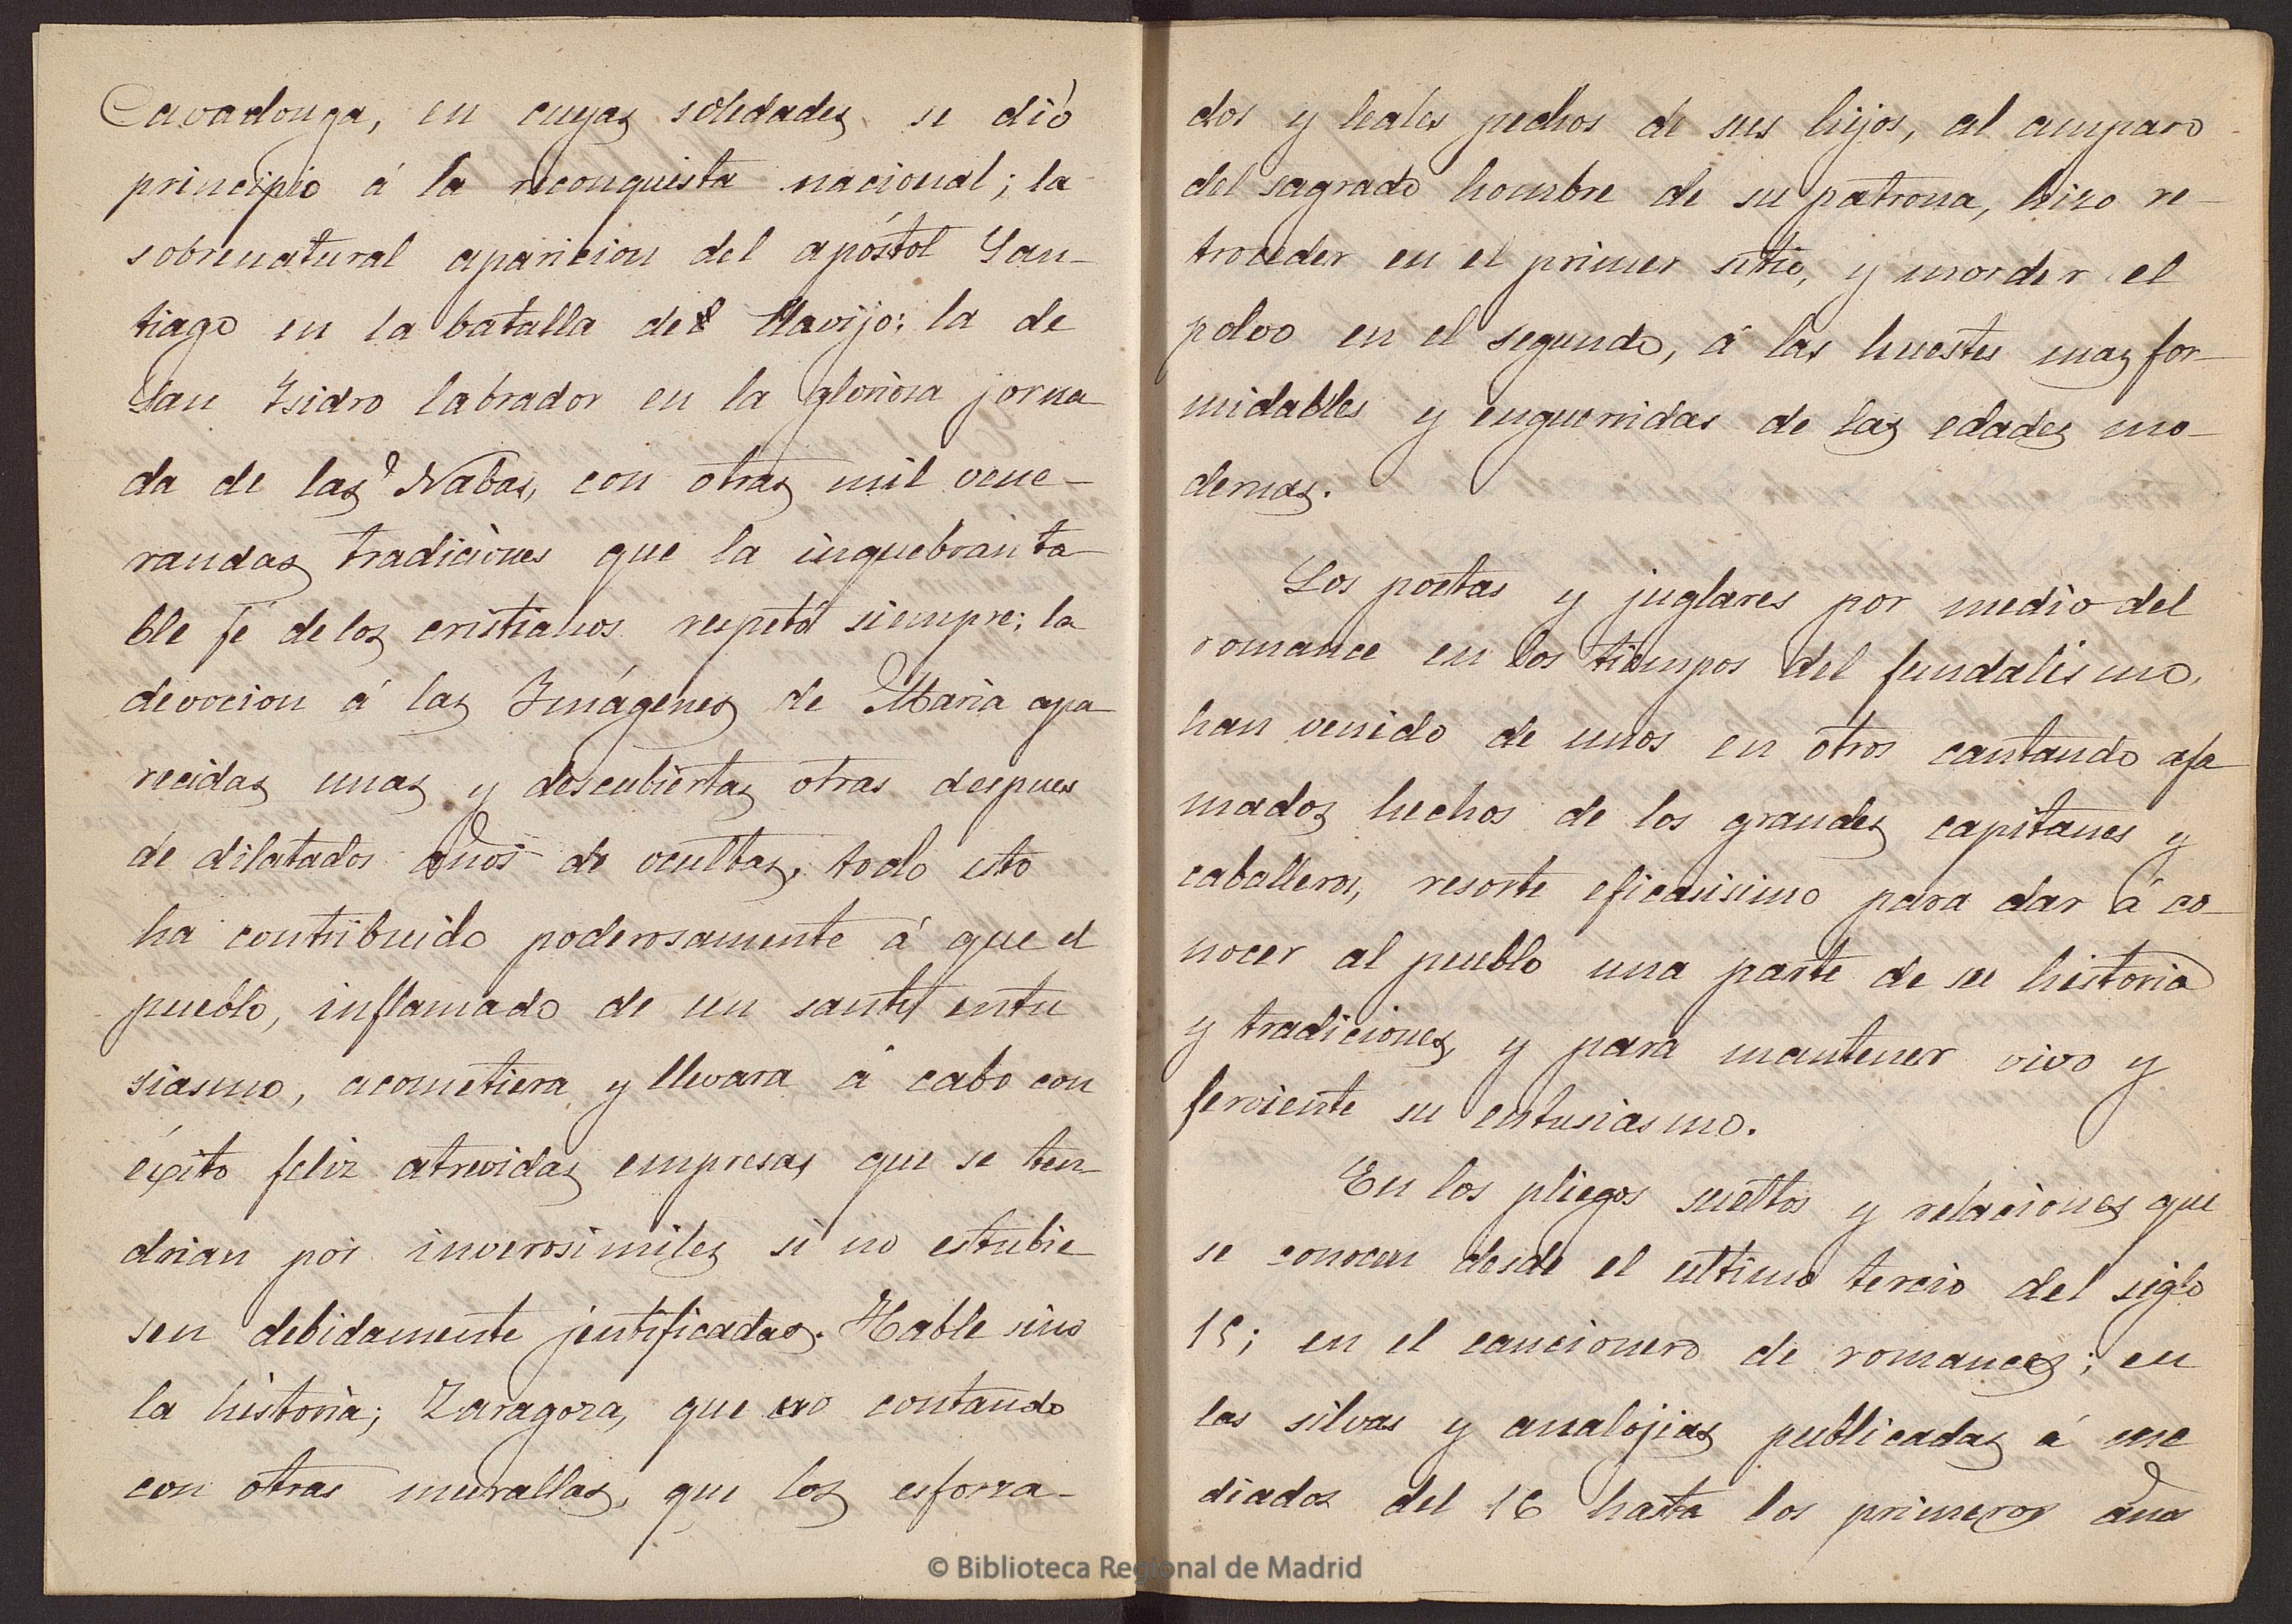 Cavadonga, en cuyas soledades se dió
principio á la reconquista nacional; la
sobrenatural aparicion del apóstol San-
tiago en la batalla de Clavijo; la de
San Isidro labrador en la gloriosa jorna
da de las Nabas, con otras mil vene-
randas tradiciones que la inquebranta
ble fé de los cristianos respetó siempre; la
devocion á las Imágenes de Maria apa
recidas unas y descubiertas otras despues
de dilatados años de ocultas, todo esto
ha contribuido poderosamente á que el
pueblo, inflamado de un santo entu
siasmo, acometiera y llevara á cabo con
éxito feliz atrevidas empresas que se ten
drian por inverosimiles si no estubie
sen debidamente justificadas. Hable sino
la historia; Zaragoza, que no contando
con otras murallas, que los esforza-
dos y leales pechos de sus hijos, al amparo
del sagrado hombre de su patrona, hizo re-
troceder en el primer sitio, y morder el
polvo en el segundo, á las huestes mas for-
midables y enguerridas de las edades mo-
dernas.
Los poetas y juglares por medio del
romance en los tiempos del fundalismo,
han venido de unos en otros cantando afa
mados hechos de los grandes capitanes y
caballeros, resorte eficasisimo para dar á co-
nocer al pueblo una parte de su historia
y tradiciones, y para mantener vivo y
ferviente su entusiasmo.
En los pliegos sueltos y relaciones que
se conocen desde el ultimo tercio del siglo
15; en el cancionero de romances; en
las silvas y analojias publicadas á me
diados del 16 hasta los primeros años
© Biblioteca Regional de Madrid